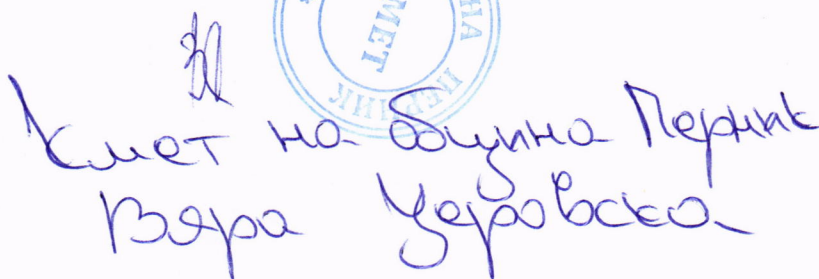 НА ПЕРНИК
КМЕТ
Кмет на община Перник
Вяра Церовска